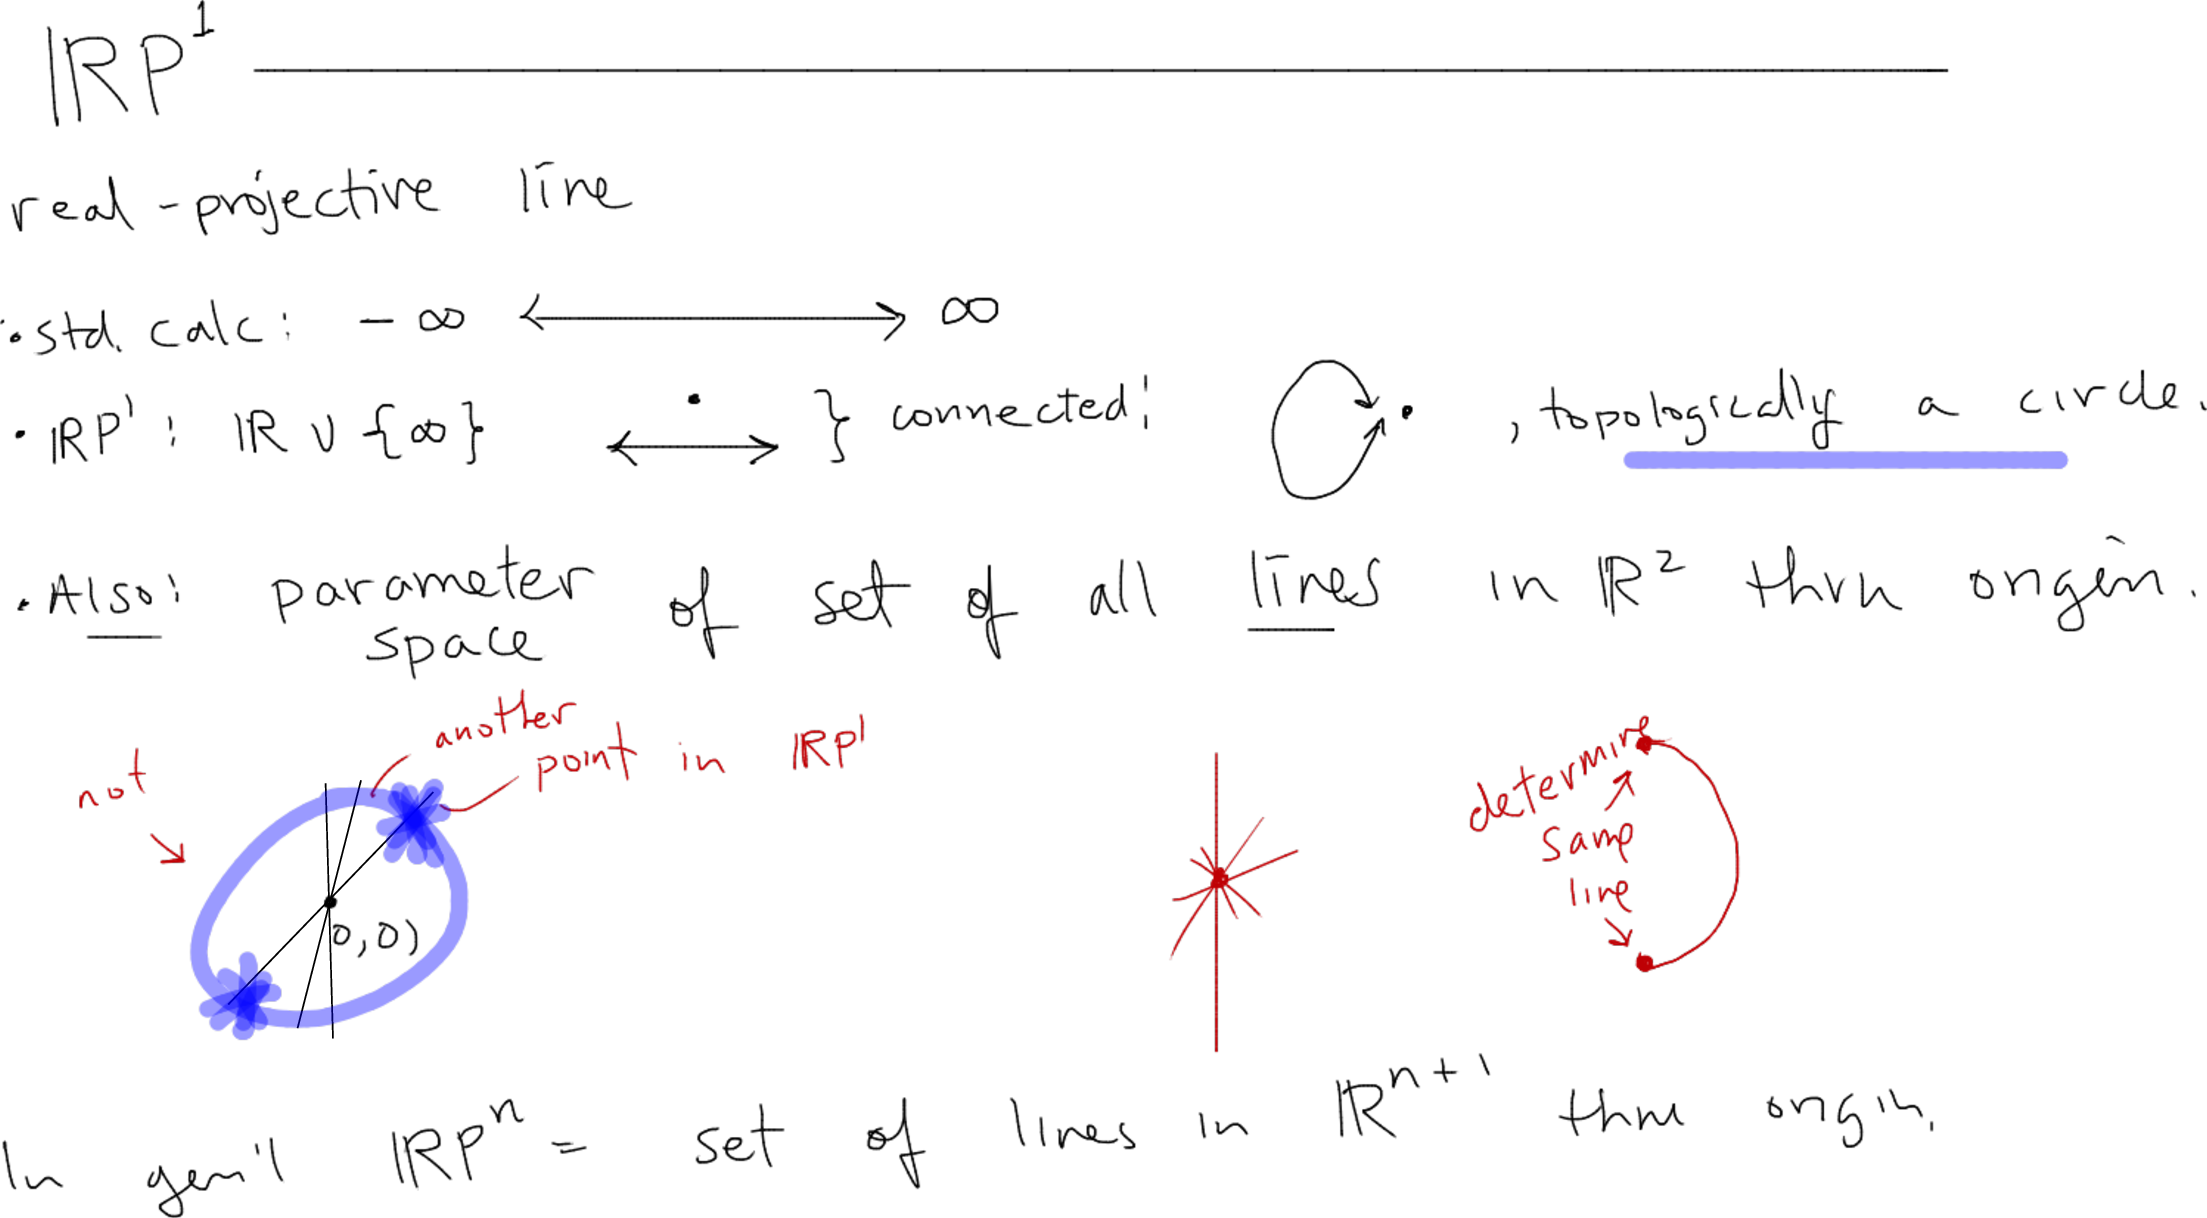 ℝP¹
real-projective line
• std. calc: -∞ ⟷ ∞
• ℝP¹: ℝ ∪ {∞} ⟷ } connected: , topologically a circle.
• Also: parameter space of set of all lines in ℝ² thru origin.
not
another point in ℝP¹
0,0)
determine same line
In gen'l ℝPⁿ = set of lines in ℝⁿ⁺¹ thru origin.